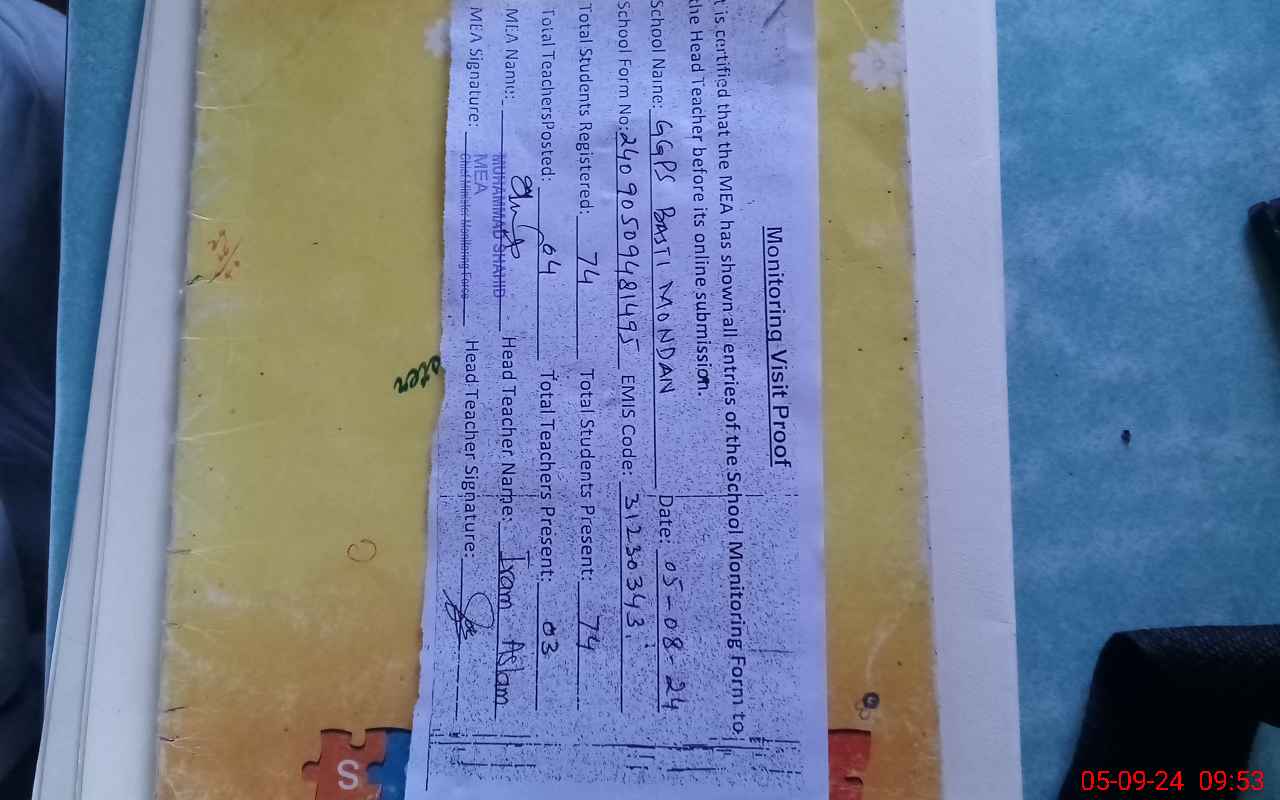 Monitoring Visit Proof
t is certified that the MEA has shown all entries of the School Monitoring Form to
the Head Teacher before its online submission.
School Name: GGPS BASTI MONDAN Date: 05-08-24
School Form No: 24090509481495 EMIS Code: 31230343.
Total Students Registered: 74 Total Students Present: 74
Total TeachersPosted: 04 Total Teachers Present: 03
MEA Name: MUHAMMAD SHAHID Head Teacher Name: Iram Aslam
MEA Signature: MEA Head Teacher Signature:
Chief Minister Monitoring Force
S
05-09-24 09:53